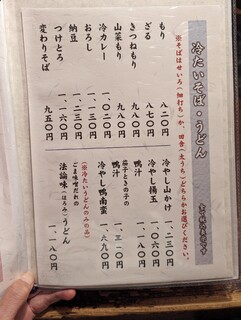 冷たいそば・うどん
※そばはせいろ(細打ち)か、田舎(太うち)どちらかお選びください。
もり 八二〇円
ざる 八七〇円
きつねもり 九八〇円
山菜もり 九八〇円
冷カレー 一、〇二〇円
おろし 一、二三〇円
納豆 一、二三〇円
つけとろ 一、一三〇円
変わりそば 九五〇円
冷やし山かけ 一、二三〇円
冷やし揚玉 九八〇円
鴨汁 一、五八〇円
茄子ときのこの鴨汁 一、三一〇円
冷やし鴨南蛮 一、六九〇円
(※冷たいうどんのみの品)
ごま味噌だれの
法論味(ほろみ)うどん 一、一八〇円